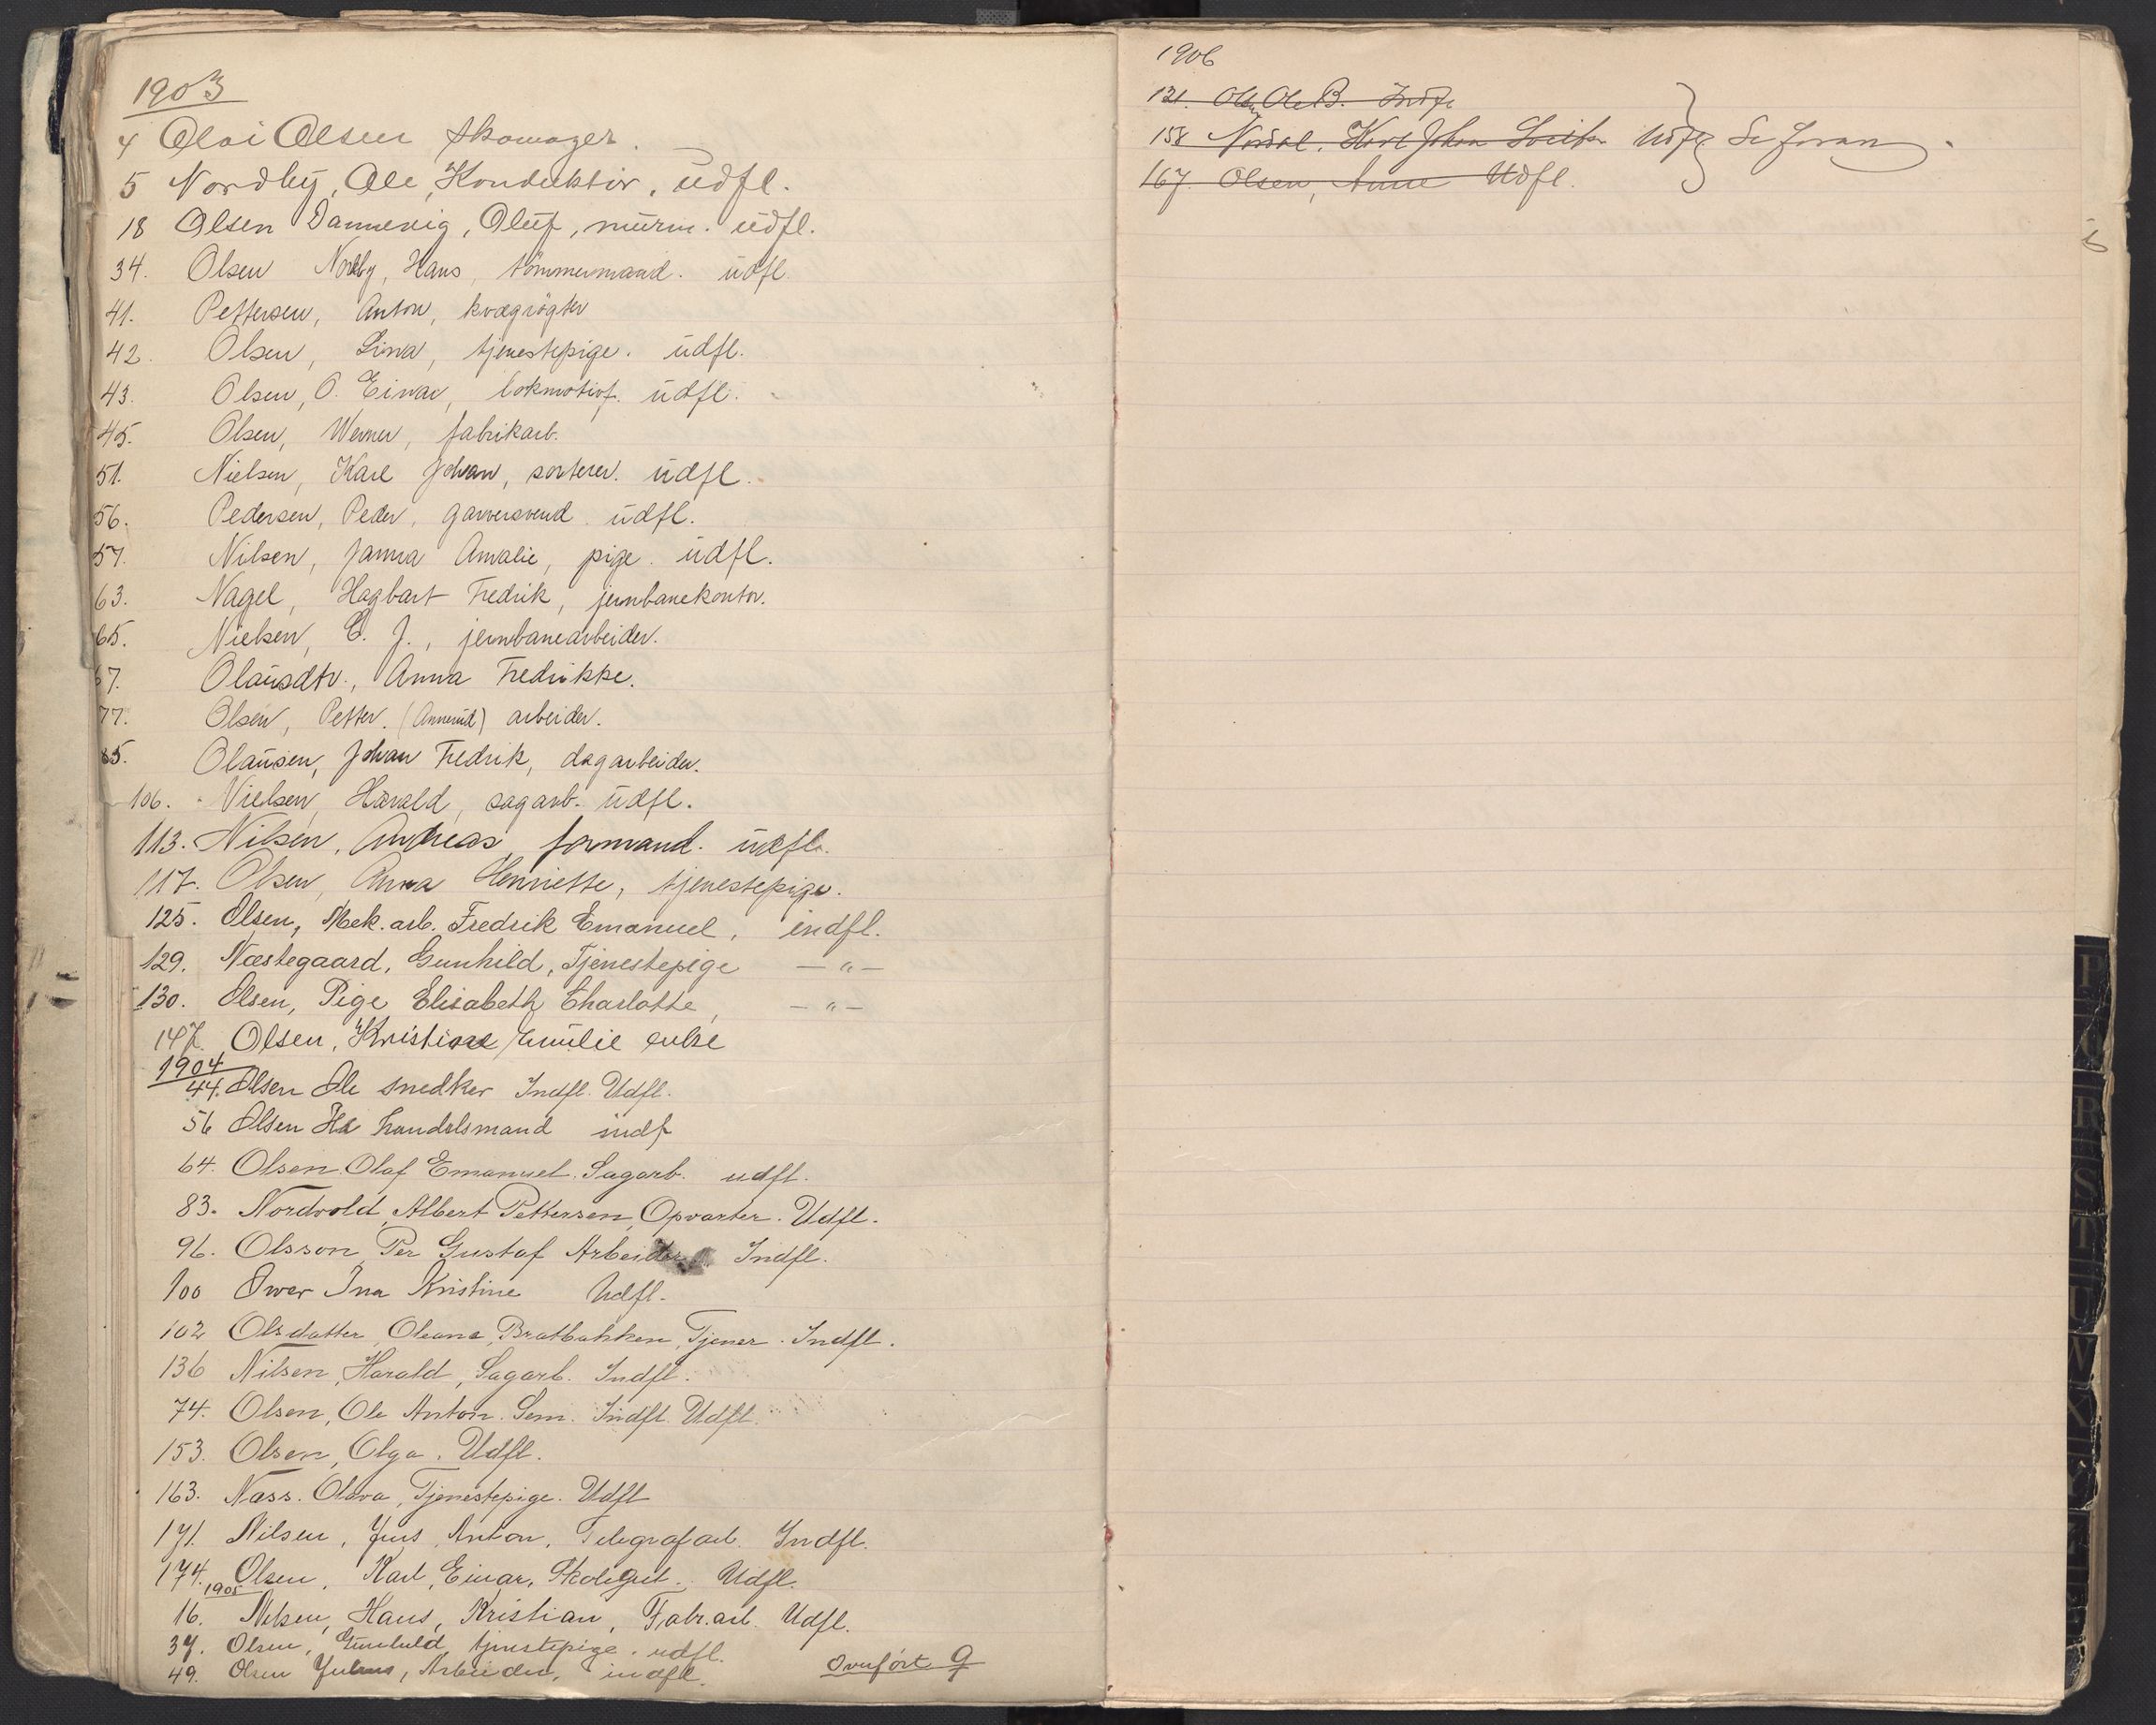 1903
4 Olai Olsen Skomager.
5 Nordby, Ole, Konduktör, udfl.
18 Olsen Dannevig, Oluf, murm. udfl.
34. Olsen Nordby, Hans, tömmermand. udfl.
41. Pettersen, Anton, kvægrögter
42. Olsen, Lina, tjenestepige. udfl.
43. Olsen, O. Einar, lokmotivf. udfl.
45. Olsen, Werner, fabrikarb.
51. Nielsen, Karl Johan, sorterer. udfl.
56. Pedersen, Peder, garversvend. udfl.
57. Nilsen, Janna Amalie, pige. udfl.
63. Nagel, Hagbart Fredrik, jernbanekontor.
65. Nielsen, E. J., jernbanearbeider.
67. Olausdtr., Anna Fredrikke.
77. Olsen, Petter. (Annerud) arbeider.
85. Olausen, Johan Fredrik, dagarbeider.
106. Nielsen, Harald, sagarb. udfl.
113. Nilsen, Andreas, formand. udfl.
117. Olsen, Anna Henriette, tjenestepige.
125. Olsen, Mek. arb. Fredrik Emanuel, indfl.
129. Næstegaard, Gunhild, Tjenestepige — " —
130. Olsen, Pige Elisabeth Charlotte, — " —
147. Olsen, Kristiane Emilie enke
1904
44. Olsen Ole snedker Indfl. Udfl.
56 Olsen Ha handelsmand indf
64. Olsen. Olaf Emanuel. Sagarb. udfl.
83. Nordvold, Albert Pettersen, Opvarter. Udfl.
96. Olsson, Per Gustaf Arbeider Indfl.
100 Ower Ina Kristine Udfl.
102 Olsdatter, Oleana, Bratbakken, Tjener. Indfl.
136 Nilsen, Harald, Sagarb. Indfl.
74. Olsen, Ole Anton. Sem. Indfl. Udfl.
153. Olsen, Olga. Udfl.
163. Næss. Olava, Tjenestepige. Udfl
171. Nilsen, Jens, Anton, Telegrafarb. Indfl.
174. Olsen, Karl, Einar, Skolegut. Udfl.
1905
16. Nilsen, Hans, Kristian, Fabr. arb. Udfl.
37. Olsen, Gunhild, tjenestepige. udfl.
49. Olsen Julius, Arbeider, indfl.
Overført 9
1906
131. Olsen Ole B. Indfl
158 Nordal, Karl Johan Udfl Se foran.
167. Olsen, Anne Udfl.
P
Q
R
S
T
U
W
X
Y